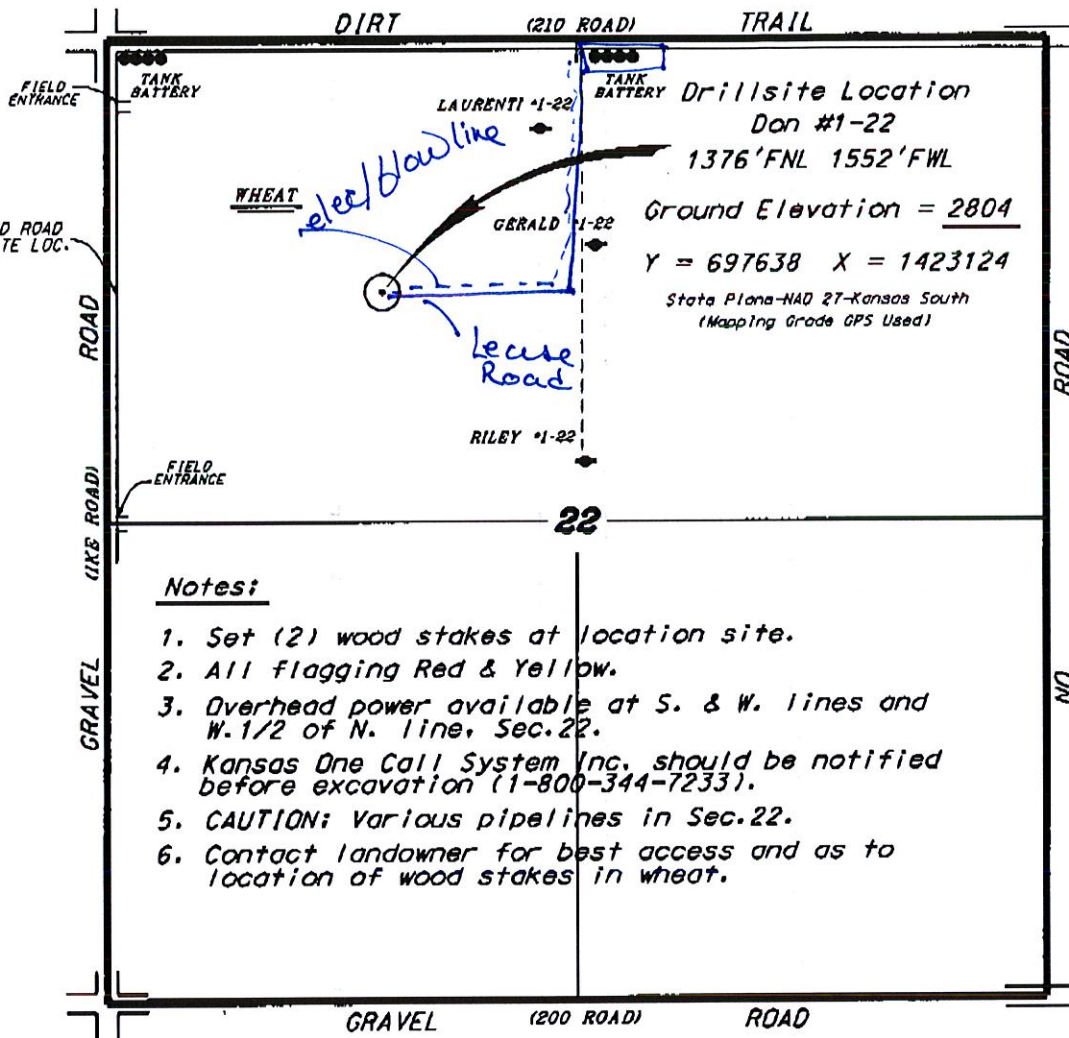 DIRT (210 ROAD) TRAIL
TANK
BATTERY
FIELD
ENTRANCE
TANK
BATTERY
LAURENTI #1-22
Drillsite Location
Don #1-22
1376'FNL 1552'FWL
elec/flowline
WHEAT
GERALD #1-22
Ground Elevation = 2804
D ROAD
TE LOC.
Y = 697638 X = 1423124
State Plane-NAD 27-Kansas South
(Mapping Grade GPS Used)
Lease
Road
ROAD
ROAD
RILEY #1-22
FIELD
ENTRANCE
(IKE ROAD)
22
GRAVEL
NO
Notes:
1. Set (2) wood stakes at location site.
2. All flagging Red & Yellow.
3. Overhead power available at S. & W. lines and
W.1/2 of N. line, Sec.22.
4. Kansas One Call System Inc. should be notified
before excavation (1-800-344-7233).
5. CAUTION: Various pipelines in Sec.22.
6. Contact landowner for best access and as to
location of wood stakes in wheat.
GRAVEL (200 ROAD) ROAD